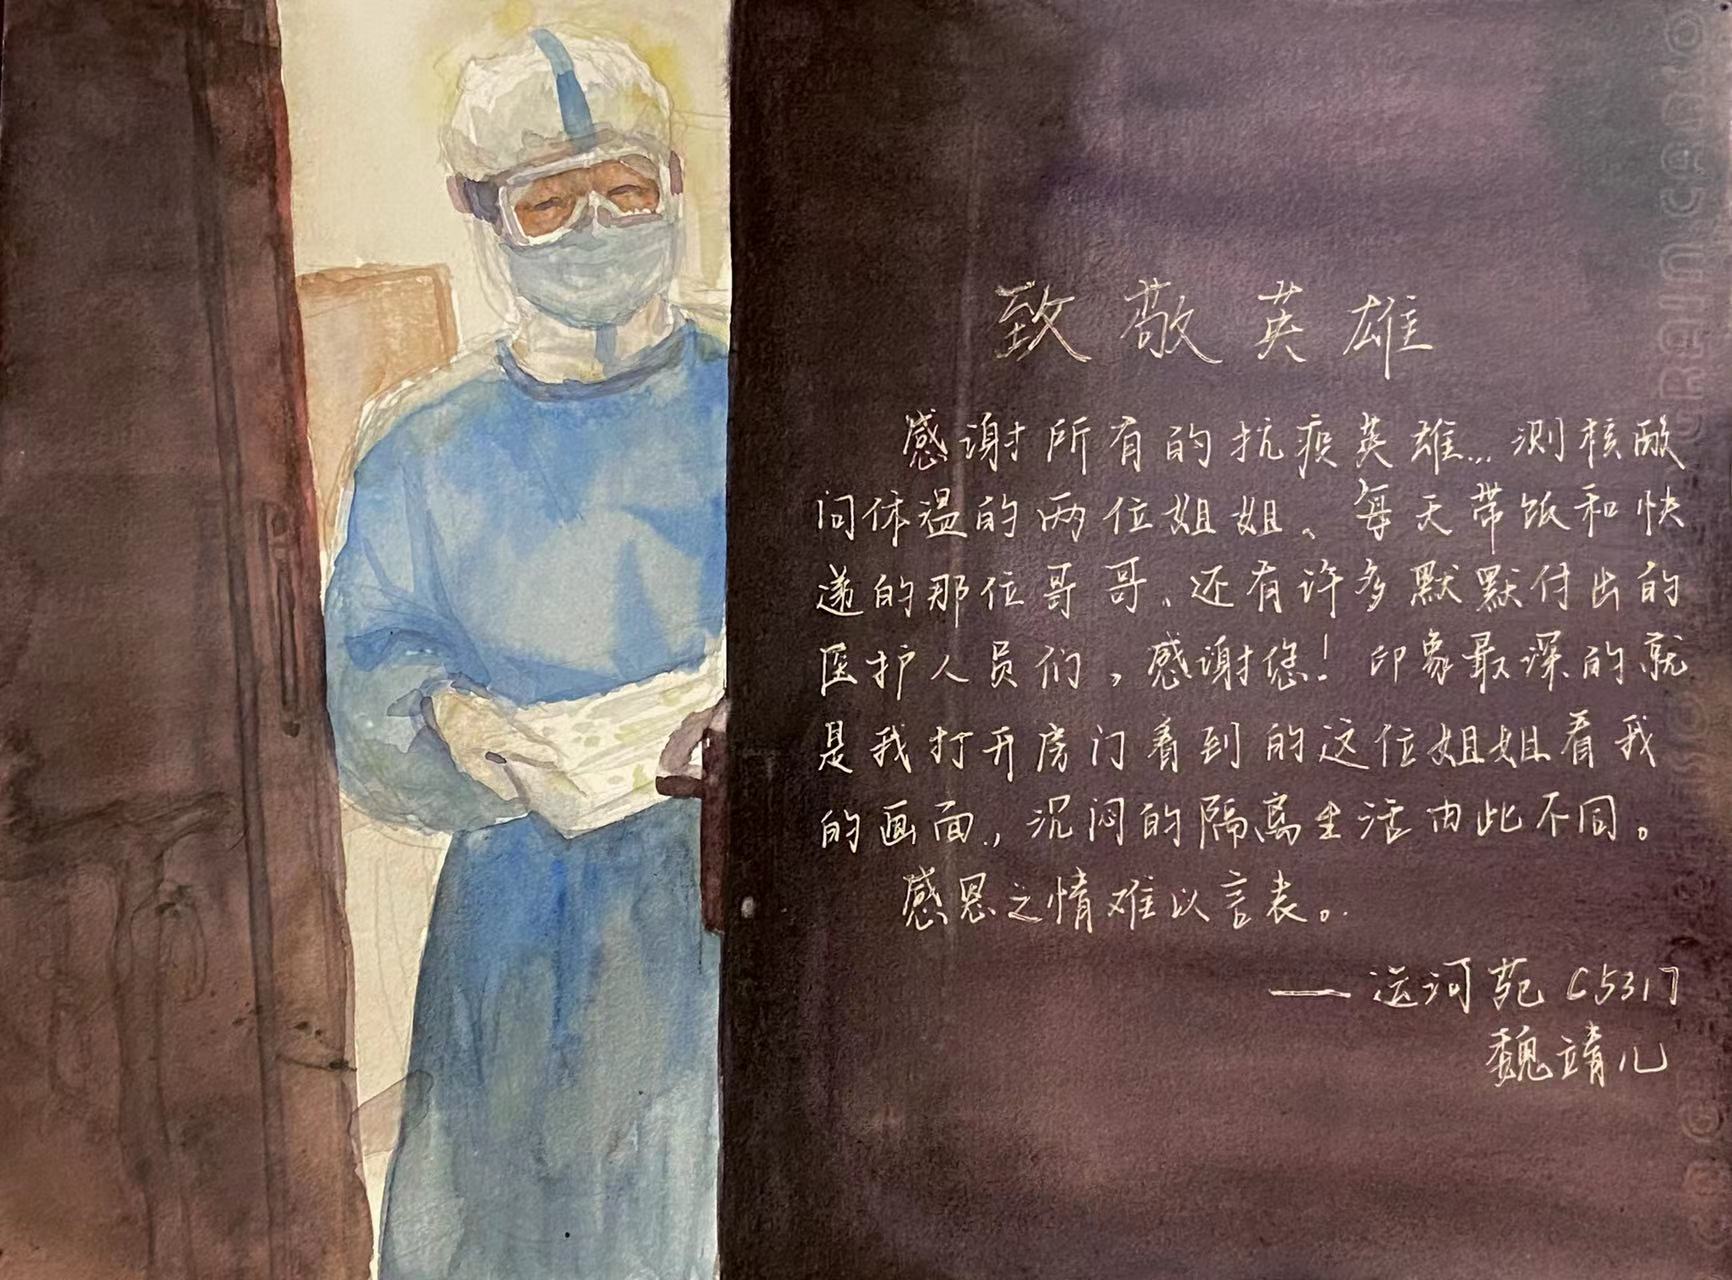 致敬英雄
感谢所有的抗疫英雄…测核酸
问体温的两位姐姐、每天带饭和快
递的那位哥哥、还有许多默默付出的
医护人员们,感谢您!印象最深的就
是我打开房门看到的这位姐姐看我
的画面,沉闷的隔离生活由此不同。
感恩之情难以言表。
——运河苑 C5317
魏靖儿